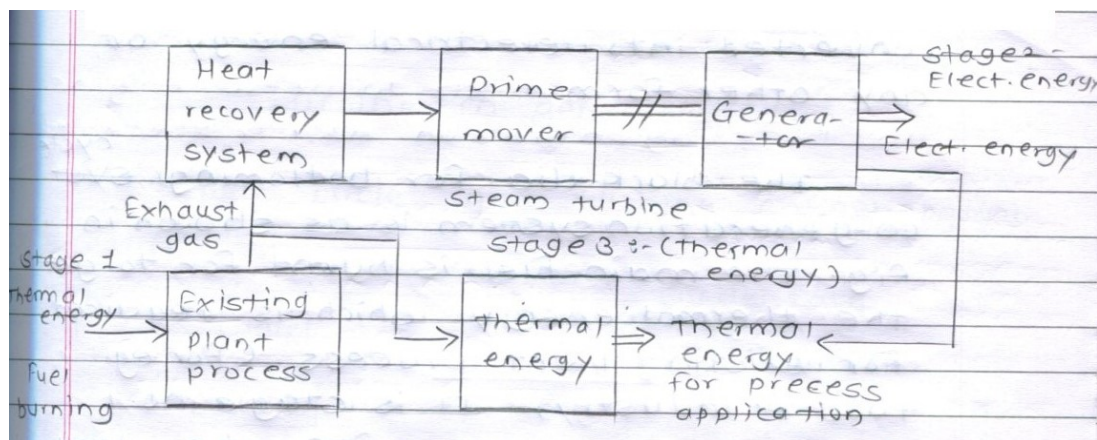 Heat
recovery
system
Prime
mover
Genera-
-tor
Stage 2 -
Elect. energy
Elect. energy
Steam turbine
Exhaust
gas
Stage 3 :- (thermal
energy)
Stage 1
Thermal
energy
Fuel
burning
Existing
plant
process
thermal
energy
thermal
energy
for precess
application